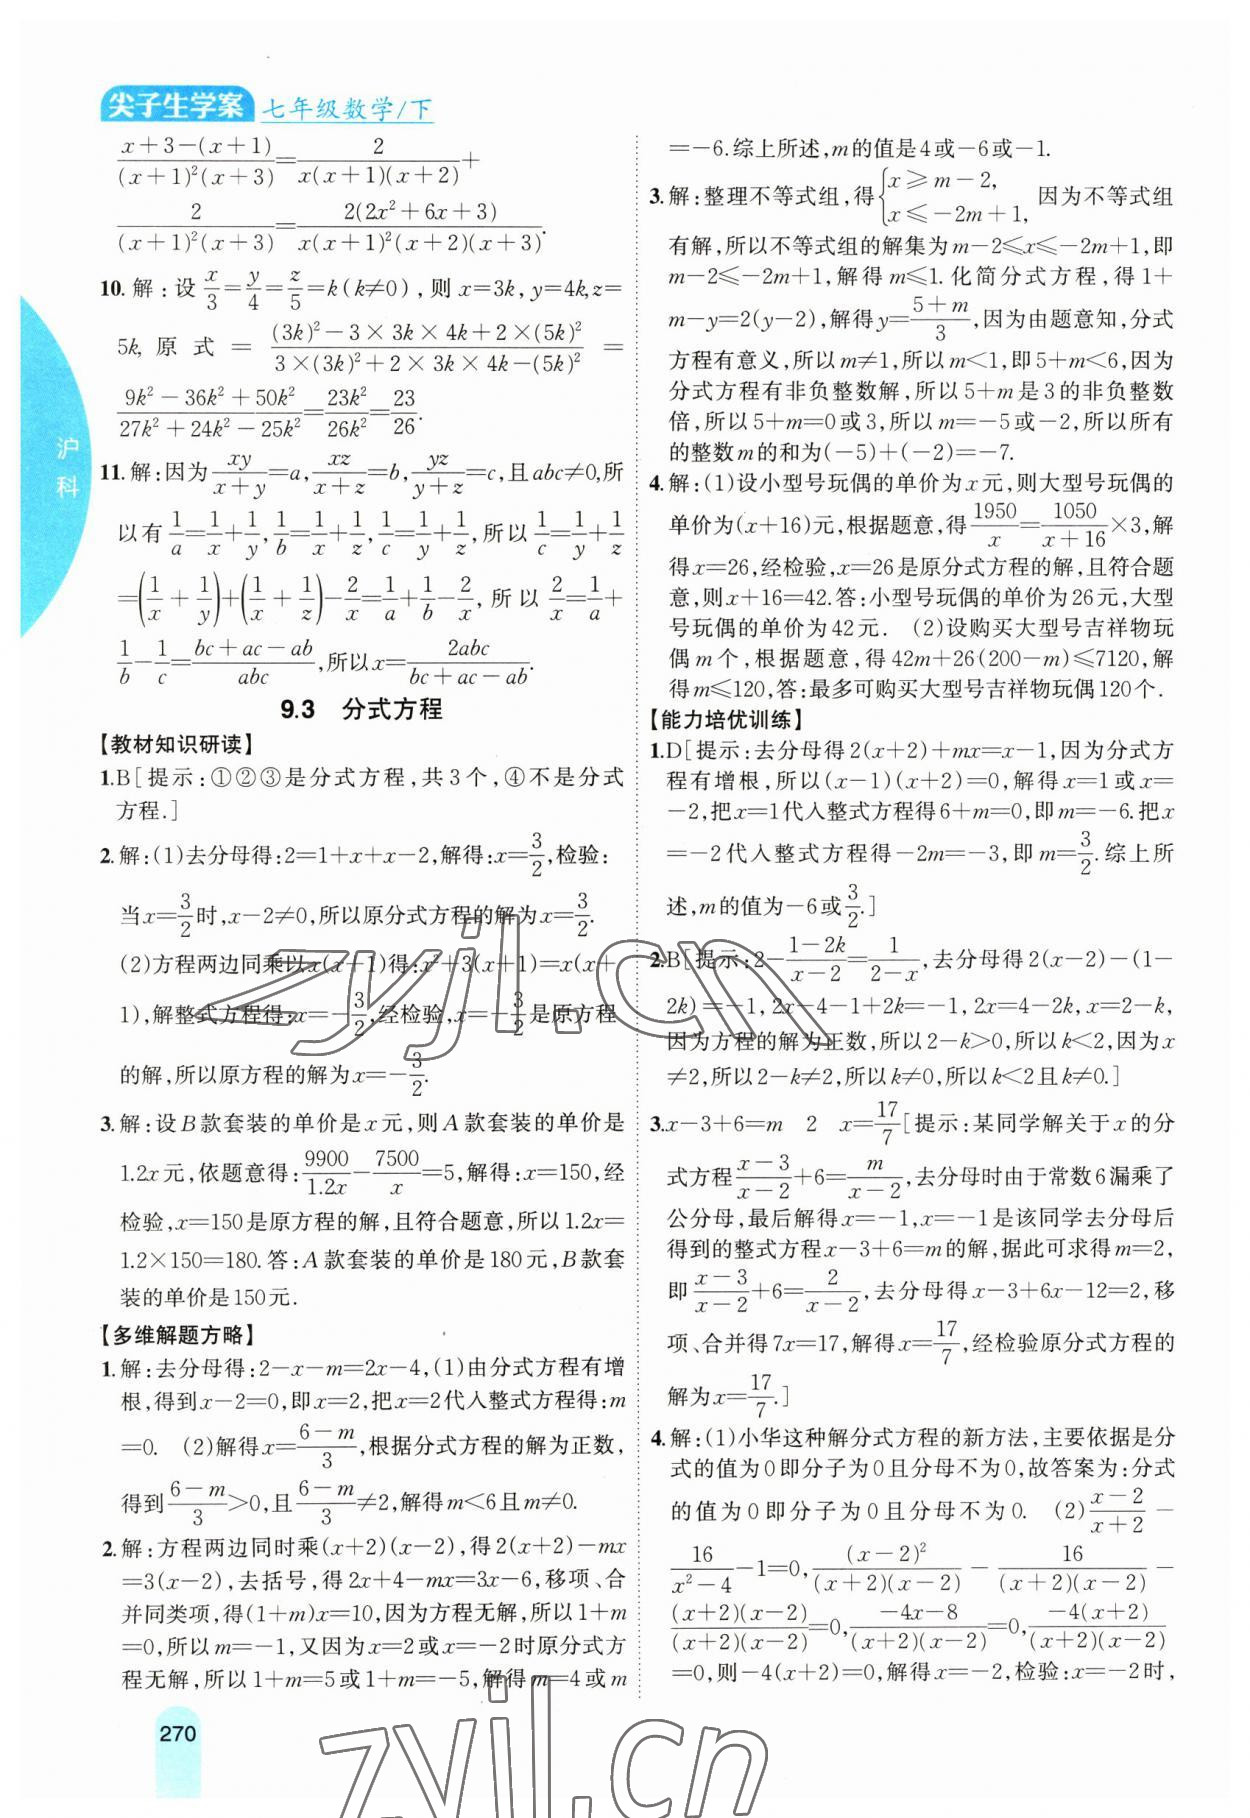 尖子生学案 七年级数学/下
沪科
\frac{x+3-(x+1)}{(x+1)^2(x+3)}=\frac{2}{x(x+1)(x+2)}+
\frac{2}{(x+1)^2(x+3)}=\frac{2(2x^2+6x+3)}{x(x+1)^2(x+2)(x+3)}.
10. 解:设\frac{x}{3}=\frac{y}{4}=\frac{z}{5}=k(k≠0),则x=3k,y=4k,z=
5k,原式=\frac{(3k)^2-3×3k×4k+2×(5k)^2}{3×(3k)^2+2×3k×4k-(5k)^2}=
\frac{9k^2-36k^2+50k^2}{27k^2+24k^2-25k^2}=\frac{23k^2}{26k^2}=\frac{23}{26}.
11. 解:因为\frac{xy}{x+y}=a,\frac{xz}{x+z}=b,\frac{yz}{y+z}=c,且abc≠0,所
以有\frac{1}{a}=\frac{1}{x}+\frac{1}{y},\frac{1}{b}=\frac{1}{x}+\frac{1}{z},\frac{1}{c}=\frac{1}{y}+\frac{1}{z},所以\frac{1}{c}=\frac{1}{y}+\frac{1}{z}
=(\frac{1}{x}+\frac{1}{y})+(\frac{1}{x}+\frac{1}{z})-\frac{2}{x}=\frac{1}{a}+\frac{1}{b}-\frac{2}{x},所以\frac{2}{x}=\frac{1}{a}+
\frac{1}{b}-\frac{1}{c}=\frac{bc+ac-ab}{abc},所以x=\frac{2abc}{bc+ac-ab}.
9.3 分式方程
【教材知识研读】
1. B[提示:①②③是分式方程,共3个,④不是分式
方程.]
2. 解:(1)去分母得:2=1+x+x-2,解得:x=\frac{3}{2},检验:
当x=\frac{3}{2}时,x-2≠0,所以原分式方程的解为x=\frac{3}{2}.
(2)方程两边同乘以x(x+1)得:x^2+3(x+1)=x(x+
1),解整式方程得:x=-\frac{3}{2},经检验,x=-\frac{3}{2}是原方程
的解,所以原方程的解为x=-\frac{3}{2}.
3. 解:设B款套装的单价是x元,则A款套装的单价是
1.2x元,依题意得:\frac{9900}{1.2x}-\frac{7500}{x}=5,解得:x=150,经
检验,x=150是原方程的解,且符合题意,所以1.2x=
1.2×150=180.答:A款套装的单价是180元,B款套
装的单价是150元.
【多维解题方略】
1. 解:去分母得:2-x-m=2x-4,(1)由分式方程有增
根,得到x-2=0,即x=2,把x=2代入整式方程得:m
=0. (2)解得x=\frac{6-m}{3},根据分式方程的解为正数,
得到\frac{6-m}{3}>0,且\frac{6-m}{3}≠2,解得m<6且m≠0.
2. 解:方程两边同时乘(x+2)(x-2),得2(x+2)-mx
=3(x-2),去括号,得2x+4-mx=3x-6,移项、合
并同类项,得(1+m)x=10,因为方程无解,所以1+m
=0,所以m=-1,又因为x=2或x=-2时原分式方
程无解,所以1+m=5或1+m=-5,解得m=4或m
270
=-6.综上所述,m的值是4或-6或-1.
3. 解:整理不等式组,得{x≥m-2, x≤-2m+1, 因为不等式组
有解,所以不等式组的解集为m-2≤x≤-2m+1,即
m-2≤-2m+1,解得m≤1.化简分式方程,得1+
m-y=2(y-2),解得y=\frac{5+m}{3},因为由题意知,分式
方程有意义,所以m≠1,所以m<1,即5+m<6,因为
分式方程有非负整数解,所以5+m是3的非负整数
倍,所以5+m=0或3,所以m=-5或-2,所以所有
的整数m的和为(-5)+(-2)=-7.
4. 解:(1)设小型号玩偶的单价为x元,则大型号玩偶的
单价为(x+16)元,根据题意,得\frac{1950}{x}=\frac{1050}{x+16}×3,解
得x=26,经检验,x=26是原分式方程的解,且符合题
意,则x+16=42.答:小型号玩偶的单价为26元,大型
号玩偶的单价为42元. (2)设购买大型号吉祥物玩
偶m个,根据题意,得42m+26(200-m)≤7120,解
得m≤120,答:最多可购买大型号吉祥物玩偶120个.
【能力培优训练】
1. D[提示:去分母得2(x+2)+mx=x-1,因为分式方
程有增根,所以(x-1)(x+2)=0,解得x=1或x=
-2,把x=1代入整式方程得6+m=0,即m=-6.把x
=-2代入整式方程得-2m=-3,即m=\frac{3}{2}.综上所
述,m的值为-6或\frac{3}{2}.]
2. B[提示:2-\frac{1-2k}{x-2}=\frac{1}{2-x},去分母得2(x-2)-(1-
2k)=-1,2x-4-1+2k=-1,2x=4-2k,x=2-k,
因为方程的解为正数,所以2-k>0,所以k<2,因为x
≠2,所以2-k≠2,所以k≠0,所以k<2且k≠0.]
3. x-3+6=m 2 x=\frac{17}{7}[提示:某同学解关于x的分
式方程\frac{x-3}{x-2}+6=\frac{m}{x-2},去分母时由于常数6漏乘了
公分母,最后解得x=-1,x=-1是该同学去分母后
得到的整式方程x-3+6=m的解,据此可求得m=2,
即\frac{x-3}{x-2}+6=\frac{2}{x-2},去分母得x-3+6x-12=2,移
项、合并得7x=17,解得x=\frac{17}{7},经检验原分式方程的
解为x=\frac{17}{7}.]
4. 解:(1)小华这种解分式方程的新方法,主要依据是分
式的值为0即分子为0且分母不为0,故答案为:分式
的值为0即分子为0且分母不为0. (2)\frac{x-2}{x+2}-
\frac{16}{x^2-4}-1=0,\frac{(x-2)^2}{(x+2)(x-2)}-\frac{16}{(x+2)(x-2)}-
\frac{(x+2)(x-2)}{(x+2)(x-2)}=0,\frac{-4x-8}{(x+2)(x-2)}=0,\frac{-4(x+2)}{(x+2)(x-2)}
=0,则-4(x+2)=0,解得x=-2,检验:x=-2时,
zyjl.cn
zyjl.cn